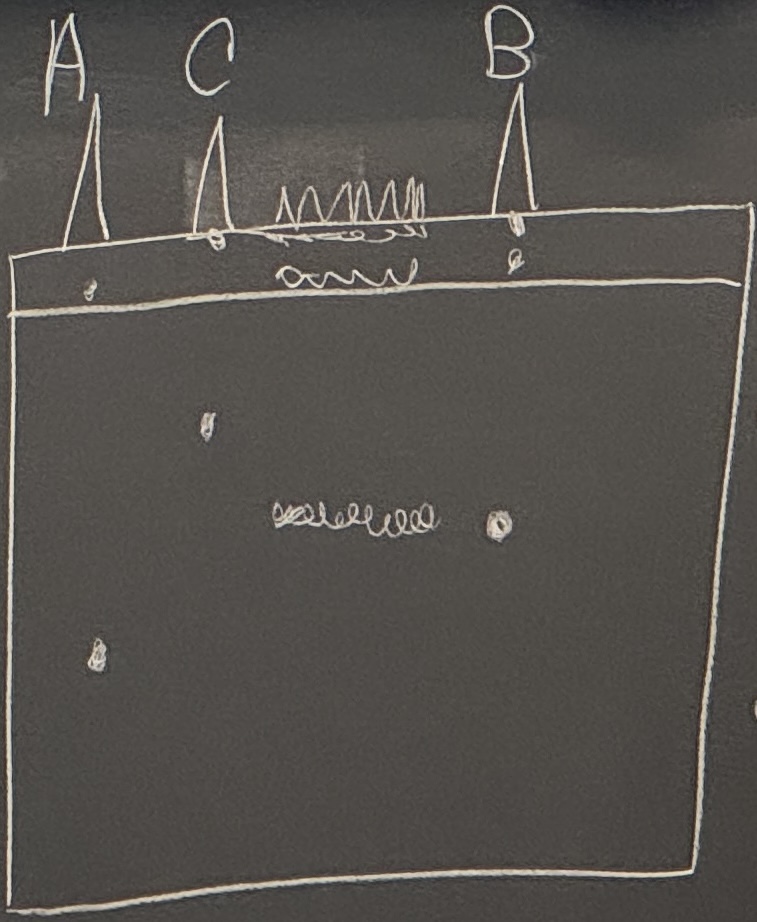 A C B